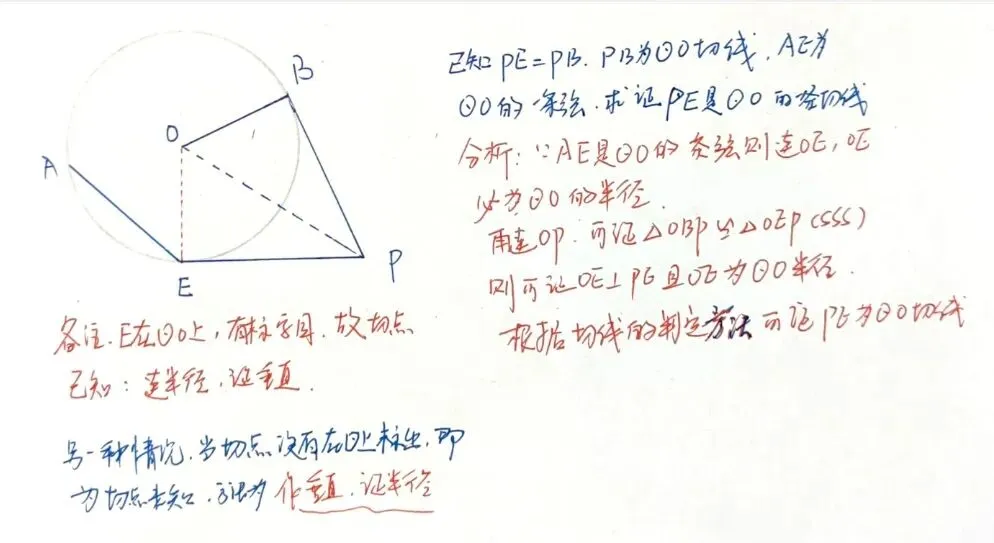 B
O
A
E
P
已知 PE=PB. PB为⊙O切线, AE为
⊙O的一条弦. 求证PE是⊙O的一条切线
分析: ∵AE是⊙O的一条弦则连OE, OE
必为⊙O的半径.
再连OP. 可证△OBP≌△OEP (SSS)
则可证OE⊥PE且OE为⊙O半径.
根据切线的判定方法可证PE为⊙O切线
备注. E在⊙O上, 有标字母. 故切点
已知: 连半径, 证垂直.
另一种情况, 当切点没有在⊙上标出, 即
为切点未知, 方法为 作垂直, 证半径